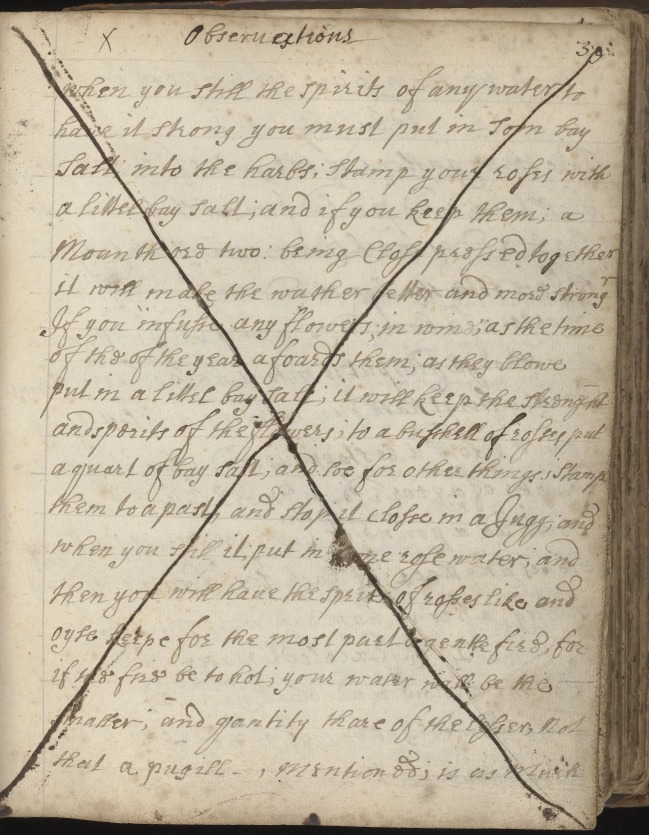 X Observations 30
when you still the spirits of any water to
have it strong you must put in som bay
salt into the harbs; stamp your roses with
a littel bay salt; and if you keep them; a
Mounth ore two: being Close pressed together
it will make the wather better and more strong
If you infuse any flowers; in wine; as the time
of the of the year afoards them; as they blowe
put in a littel bay salt; it will keep the strenght
and sperits of the flowers; to a bushell of roses put
a quart of bay salt; and soe for other things; stamp
them to a past, and stop it close in a Jugg; and
when you still it put in some rose water; and
then you will have the sperit of rosses like and
oyle keepe for the most part a gentle fire, for
if the fire be to hot; your water will be the
smaller; and qantity thare of the lesser, Not
that a pugill - , Mentioned; is as Much